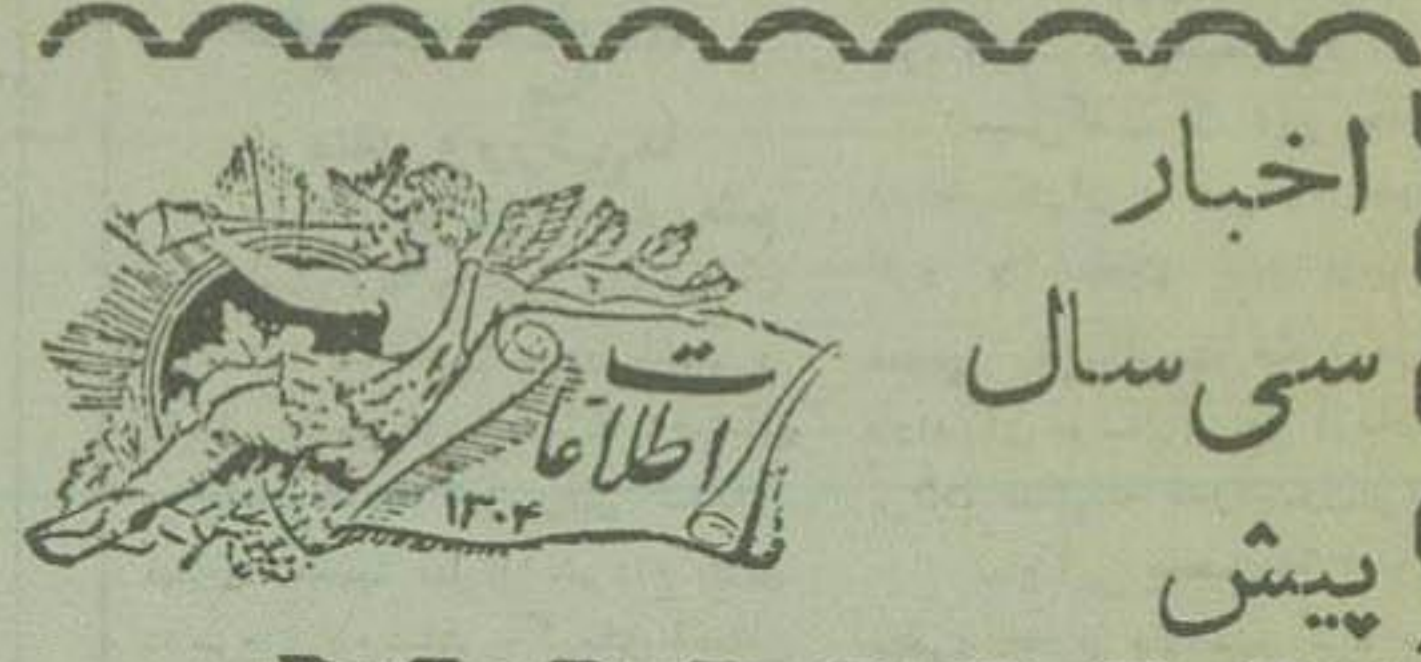 اخبار
سی سال
پیش
اطلاعات
۱۳۰۴